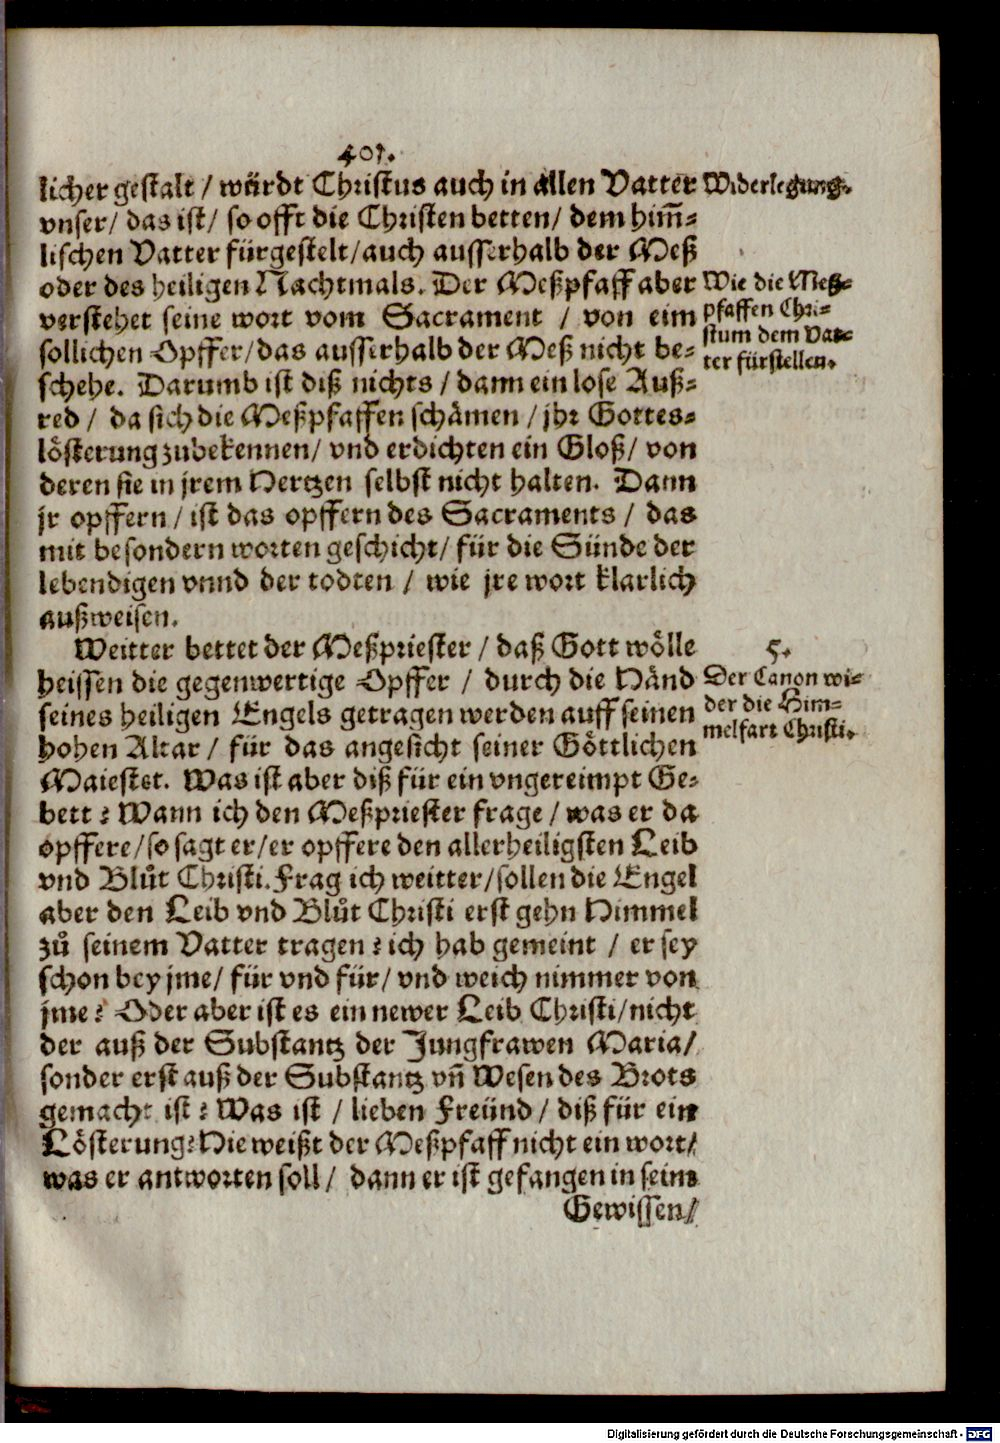 401.
licher gestalt / würdt Christus auch in allen Vatter
vnser / das ist / so offt die Christen betten / dem him̃-
lischen Vatter fürgestelt / auch ausserhalb der Meß
oder des heiligen Nachtmals. Der Meßpfaff aber
verstehet seine wort vom Sacrament / von eim
sollichen Opffer / das ausserhalb der Meß nicht be-
schehe. Darumb ist diß nichts / dann ein lose Auß-
red / da sich die Meßpfaffen schämen / jhr Gottes-
lösterung zubekennen / vnd erdichten ein Gloß / von
deren sie in jrem Hertzen selbst nicht halten. Dann
jr opffern / ist das opffern des Sacraments / das
mit besondern worten geschicht / für die Sünde der
lebendigen vnnd der todten / wie jre wort klarlich
außweisen.
Widerlegung.
Wie die Meß-
pfaffen Chri-
stum dem Vat-
ter fürstellen.
Weitter bettet der Meßpriester / daß Gott wölle
heissen die gegenwertige Opffer / durch die Händ
seines heiligen Engels getragen werden auff seinen
hohen Altar / für das angesicht seiner Göttlichen
Maiestet. Was ist aber diß für ein vngereimpt Ge-
bett? Wann ich den Meßpriester frage / was er da
opffere / so sagt er / er opffere den allerheiligsten Leib
vnd Blůt Christi. Frag ich weitter / sollen die Engel
aber den Leib vnd Blůt Christi erst gehn Himmel
zů seinem Vatter tragen? ich hab gemeint / er sey
schon bey jme / für vnd für / vnd weich nimmer von
jme? Oder aber ist es ein newer Leib Christi / nicht
der auß der Substantz der Jungfrawen Maria /
sonder erst auß der Substantz vñ Wesen des Brots
gemacht ist? Was ist / lieben Freünd / diß für ein
Lösterung? Hie weißt der Meßpfaff nicht ein wort /
was er antworten soll / dann er ist gefangen in seim
Gewissen /
5.
Der Canon wi-
der die Him-
melfart Christi.
Digitalisierung gefördert durch die Deutsche Forschungsgemeinschaft - DFG